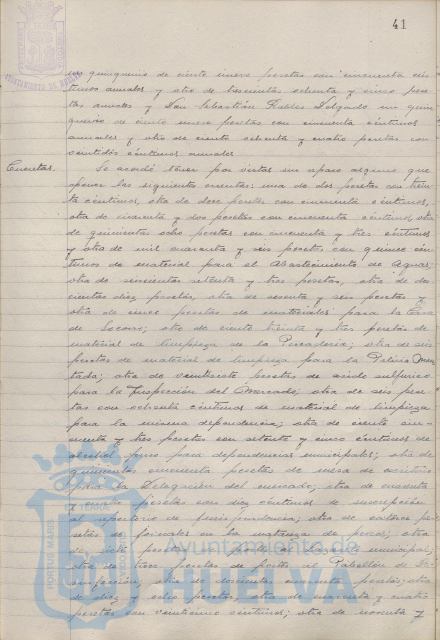 41
un quinquenio de ciento nueve pesetas con cincuenta cén-
timos anuales y otro de trescientas ochenta y cinco pese-
tas anuales y Don Sebastián Robles Delgado un quin-
quenio de ciento nueve pesetas con cincuenta céntimos
anuales y otro de ciento ochenta y cuatro pesetas con
veintidós céntimos anuales
Cuentas.
Se acordó tener por vistas sin reparo alguno que
oponer las siguientes cuentas: una de dos pesetas con trein-
ta céntimos, otra de doce pesetas con cincuenta céntimos,
otra de cincuenta y dos pesetas con cincuenta céntimos, otra
de quinientas ocho pesetas con cincuenta y tres céntimos
y otra de mil cuarenta y seis pesetas con quince cén-
timos de material para el Abastecimiento de Aguas;
otra de setenta y tres pesetas, otra de dos-
cientas diez pesetas, otra de sesenta y seis pesetas y
otra de once pesetas de materiales para la Casa
de Socorro; otra de ciento treinta y tres pesetas de
material de limpieza de la Pescadería; otra de seis
pesetas de material de limpieza para la Policía Mon-
tada; otra de veintisiete pesetas de ácido sulfúrico
para la Inspección del Mercado; otra de seis pese-
tas con ochenta céntimos de material de limpieza
para la misma dependencia; otra de ciento cin-
cuenta y tres pesetas con setenta y cinco céntimos de
alcohol para dependencias municipales; otra de
quinientas cincuenta pesetas de mesa de escritorio
para la Delegación del mercado; otra de cuarenta
pesetas con diez céntimos de suscripción
al repertorio de jurisprudencia; otra de catorce pe-
setas de jornales en la matanza de perros; otra
de siete pesetas de portes al Laboratorio municipal;
otra de trece pesetas de portes al Pabellón de De-
sinfección; otra de doscientas cincuenta pesetas; otra
de diez y ocho pesetas, otra de cincuenta y cuatro
pesetas con veinticinco céntimos; otra de noventa y
Ayuntamiento de
HUELVA